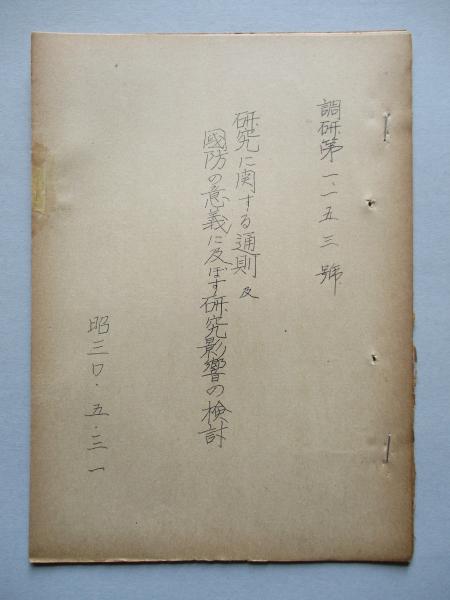 調研第一・一五三號
研究に関する通則及
國防の意義に及ぼす研究影響の検討
昭三〇・五・三一